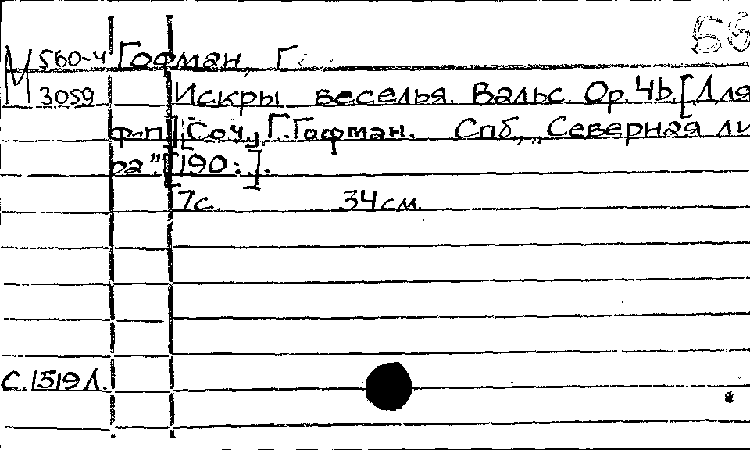 56
М 560-4 Гофман, Г.
3059 Искры веселья. Вальс. Ор. 46. [Для
ф-п]. [Соч.] Г. Гофман. Спб., „Северная ли
ра" [190:].
7с. 34 см.
С.1519 Л.